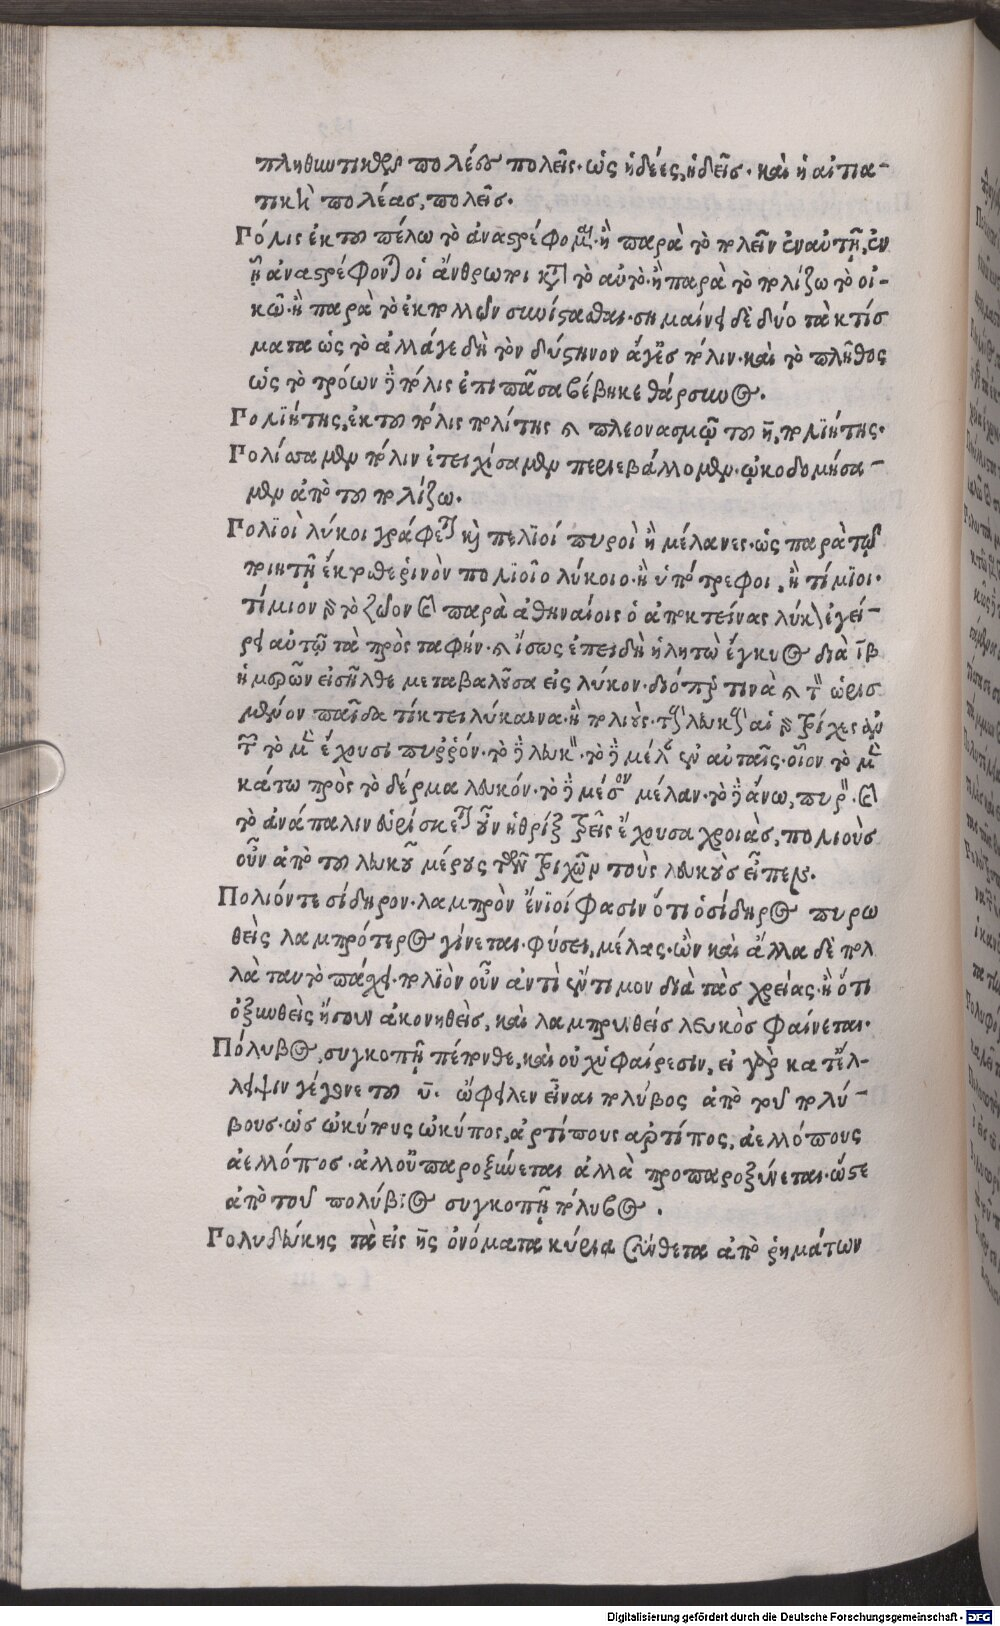 πληθυντικῶς πολέες πολεῖς· ὡς ἡδέες, ἡδεῖς· καὶ ἡ αἰτια-
τικὴ πολέας, πολεῖς.
Πόλις ἐκ του πέλω τὸ ἀναστρέφομαι· ἢ παρὰ τὸ πολεῖν ἐν αὐτῇ, ἐν
ᾗ ἀναστρέφονται οἱ ἄνθρωποι κατὰ τὸ αὐτό· ἢ παρὰ τὸ πολίζω τὸ οἰ-
κῶ· ἢ παρὰ τὸ ἐκ πολλῶν συνίστασθαι· σημαίνει δὲ δύο τὰ κτίσ
ματα ὡς τὸ ἀλλ' ἄγε δὴ τὸν δύστηνον ἄγεις πόλιν· καὶ τὸ πλῆθος
ὡς τὸ τρώων δὲ πόλις ἐπὶ πᾶσα βέβηκε θάρσυνος.
Πολιήτης, ἐκ του πόλις πολίτης καὶ πλεονασμῷ του η, πολιήτης.
Πολίσσαμεν πόλιν ἐτειχίσαμεν περιεβάλλομεν· ᾠκοδομήσα-
μεν ἀπὸ του πολίζω.
Πολϊοὶ λύκοι γράφεται καὶ πελϊοί πυροὶ ἢ μέλανες· ὡς παρὰ τῶ
ποιητῇ ἐκριθερινὸν πολϊοῖο λύκοιο· ἢ ὑπότρεφοι, ἢ τίμϊοι·
τίμιον γὰρ τὸ ζῶον καὶ παρὰ ἀθηναίοις ὁ ἀποκτείνας λύκον ἐγεί-
ρει αὐτῷ τὰ πρὸς ταφήν· καὶ ἴσως ἐπειδὴ ἡ λητὼ ἔγκυος διὰ ιβ
ἡμερῶν εἰσῆλθε μεταβαλοῦσα εἰς λύκον· διόπερ τινὰ καὶ τὸν ὡρισ
μένον παῖδα τίκτει λύκαινα· ἢ πολιοὺς τοὺς λευκοὺς αἱ γὰρ τρίχες αὐ
τῶν τὸ μὲν ἔχουσι πυῤῥόν· τὸ δὲ λευκὸν· τὸ δὲ μέλαν ἐν αὐταῖς· οἷον τὸ μὲν
κάτω πρὸς τὸ δέρμα λευκόν· τὸ δὲ μέσον μέλαν· τὸ δὲ ἄνω, πυρὸν· καὶ
τὸ ἀνάπαλιν εὑρίσκεται οὖν ἡ θρὶξ τρεῖς ἔχουσα χροιὰς, πολιοὺς
οὖν ἀπὸ του λευκοῦ μέρους τῶν τριχῶν τοὺς λευκοὺς εἶπεν.
Πολιόν τε σίδηρον· λαμπρὸν ἔνϊοί φασιν ὅτι ὁ σίδηρος πυρω
θεὶς λαμπρότερος γίνεται· φύσει, μέλας· ὢν καὶ ἄλλα δὲ πολ
λὰ ταυτὸ πάσχει· πολϊὸν οὖν ἀντὶ ἔντιμον διὰ τὰς χρείας· ἢ ὅτι
ὀξυνθεὶς ἤτουν ἀκονηθεὶς, καὶ λαμπρυνθεὶς λευκὸς φαίνεται·
Πόλυβος, συγκοπῇ πέπονθε, καὶ οὐχ' ὑφαίρεσιν, εἰ γὰρ κατ' ἔλ-
λειψιν γέγονε του υ. ὤφειλεν εἶναι πολύβος ἀπὸ τοῦ πολύ-
βους· ὡς ὠκύπους ὠκύπος, ἀρτίπους ἀρτίπος, ἀελλόπους
ἀελλόπος· ἀλλ' οὐ παροξύνεται ἀλλὰ προπαροξύνεται· ὥστε
ἀπὸ τοῦ πολύβιος συγκοπῇ πόλυβος.
Πολυδεύκης τὰ εἰς ης ὀνόματα κύρια σύνθετα ἀπὸ ῥημάτων
Digitalisierung gefördert durch die Deutsche Forschungsgemeinschaft - DFG